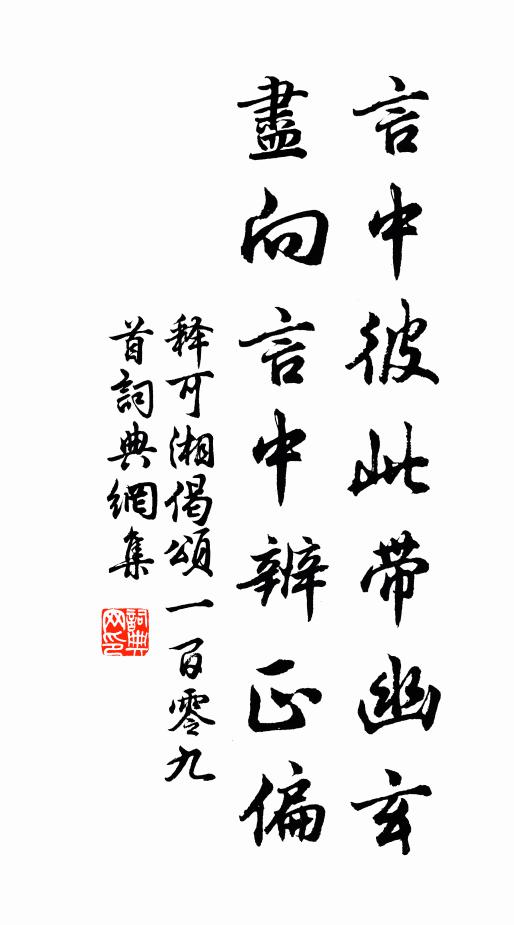 言中彼此带幽玄
盡向言中辨正偏
释可湘偈頌一百零九
首詞典網集
詞典網印